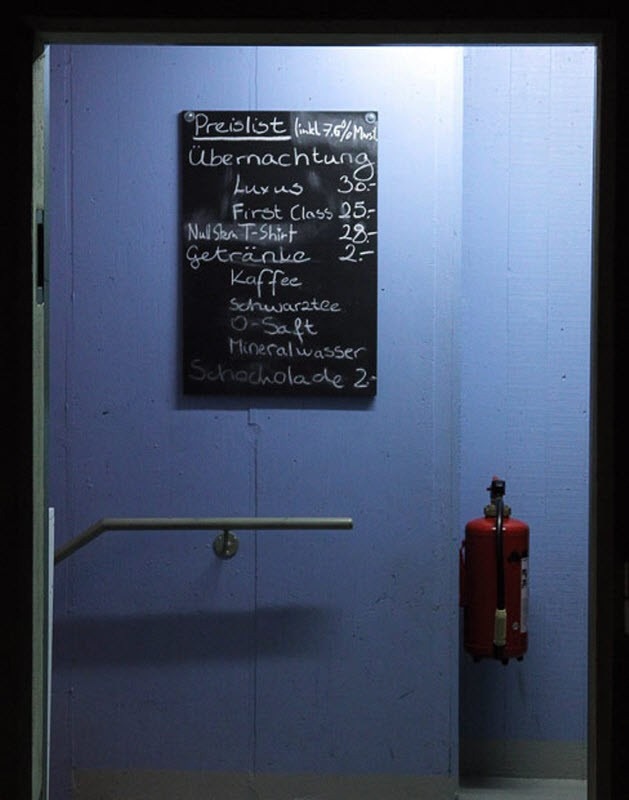 Preislist (inkl 7.6% Mwst
Übernachtung
Luxus 30.-
First Class 25.-
Null Stern T-Shirt 28.-
Getränke 2.-
Kaffee
Schwarztee
O-Saft
Mineralwasser
Schockolade 2.-